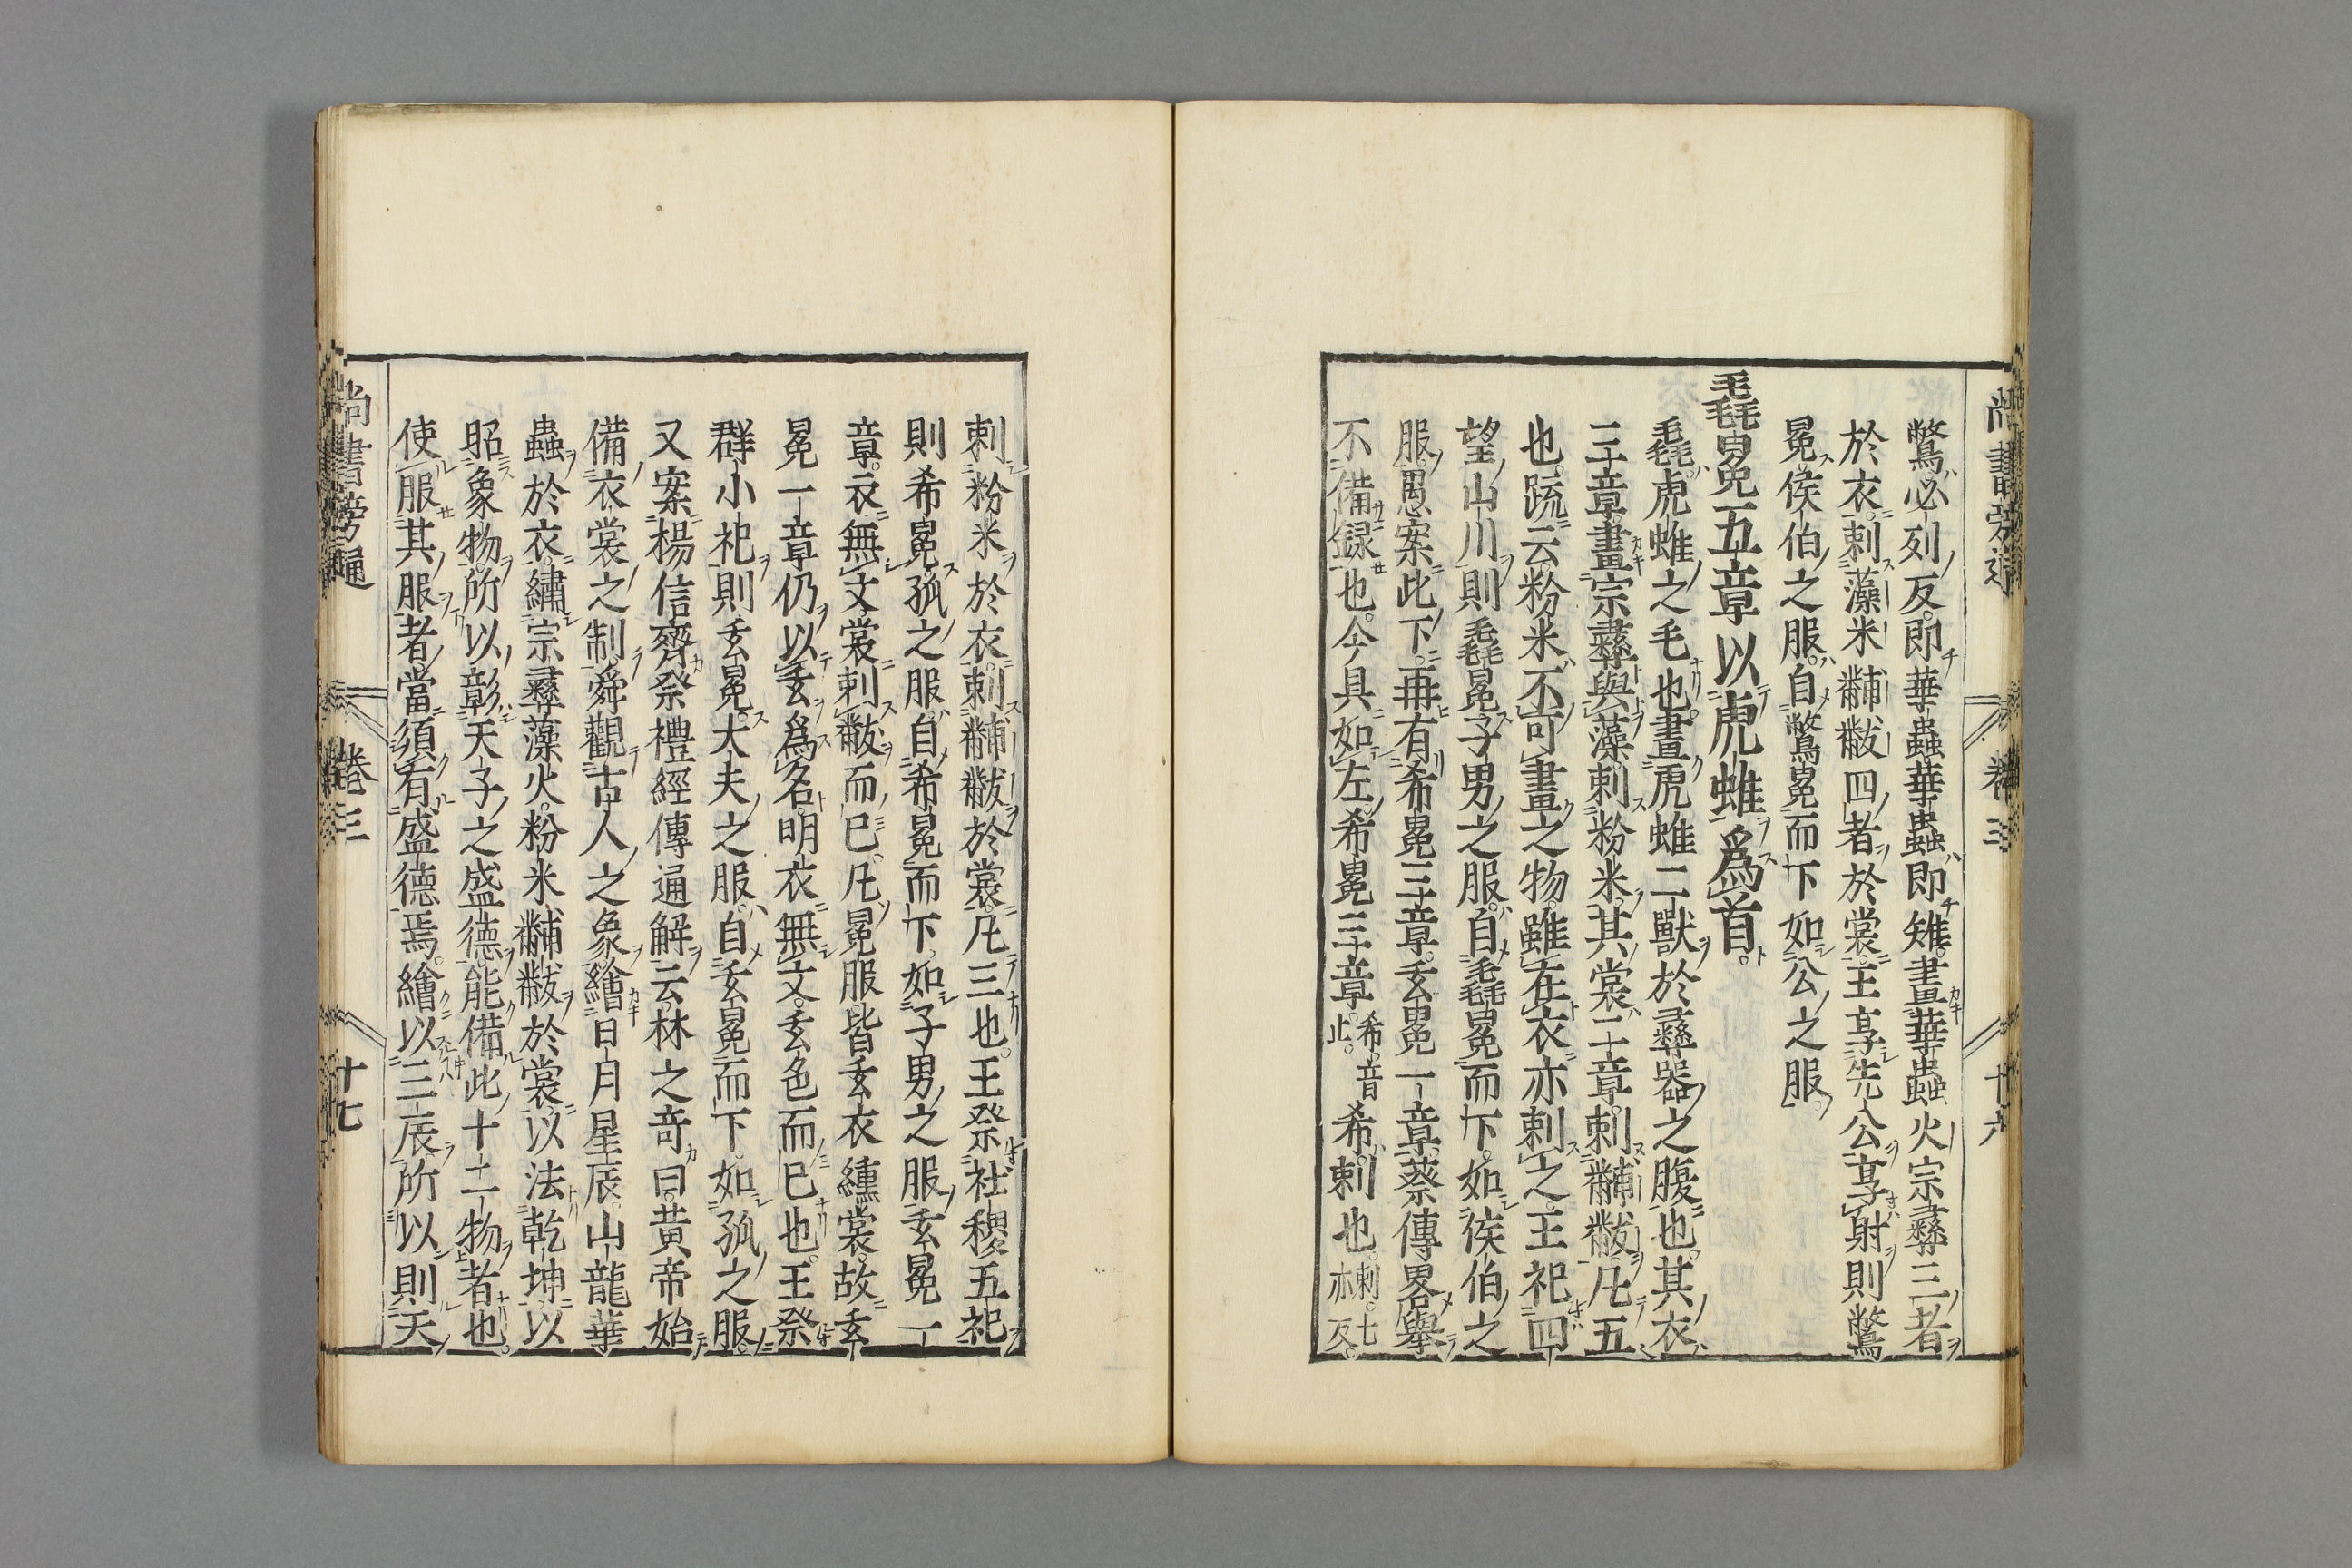 鷩必列反即華蟲華蟲即雉畫華蟲火宗彝三者
於衣刺藻米黼黻四者於裳王享先公享射則鷩
冕侯伯之服自鷩冕而下如公之服
毳冕五章以虎蜼爲首
毳虎蜼之毛也畫虎蜼二獸於彝器之腹也其衣
三章畫宗彝與藻刺粉米其裳二章刺黼黻凡五
也疏云粉米不可畫之物雖在衣亦刺之王祀四
望山川則毳冕子男之服自毳冕而下如侯伯之
服愚案此下再有希冕三章玄冕一章蔡傳畧舉
不備録也今具如左希冕三章希音止希刺也刺七亦反
刺粉米於衣刺黼黻於裳凡三也王祭社稷五祀
則希冕孤之服自希冕而下如子男之服玄冕一
章衣無文裳刺黻而已凡冕服皆玄衣纁裳故玄
冕一章仍以玄爲名明衣無文玄色而已也王祭
群小祀則玄冕大夫之服自玄冕而下如孤之服
又案楊信齋祭禮經傳通解云林之奇曰黄帝始
備衣裳之制舜觀古人之象繪日月星辰山龍華
蟲於衣繡宗彝藻火粉米黼黻於裳以法乾坤以
昭象物所以彰天子之盛德能備此十二物者也
使服其服者當須有盛德焉繪以三辰所以則天
尚書旁通 卷三 十七